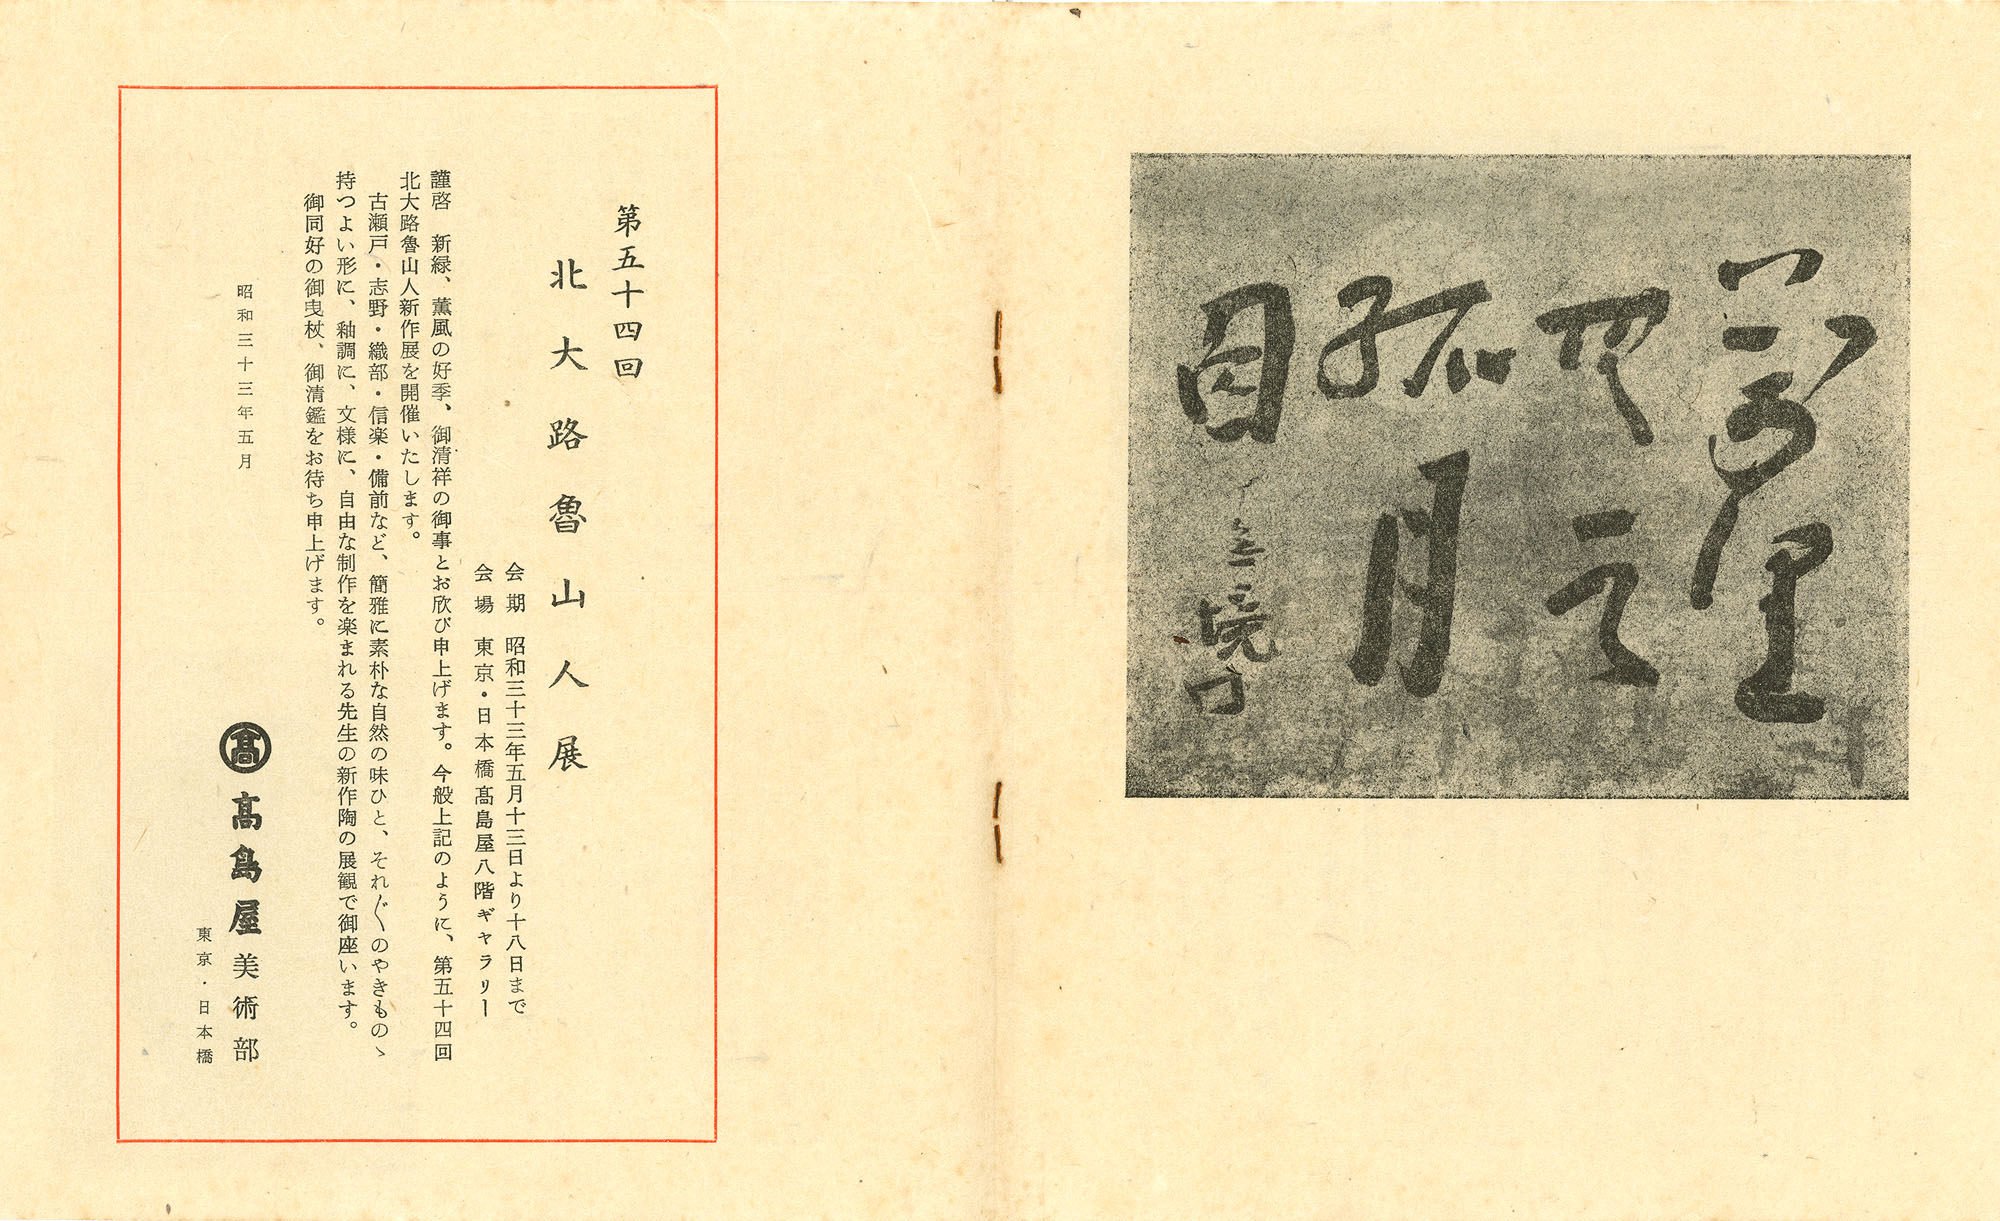 萬里
孤月
第五十四回
北大路魯山人展
会期　昭和三十三年五月十三日より十八日まで
会場　東京・日本橋髙島屋八階ギャラリー
謹啓　新緑、薫風の好季、御清祥の御事とお欣び申上げます。今般上記のように、第五十四回
北大路魯山人新作展を開催いたします。
古瀬戸・志野・織部・信楽・備前など、簡雅に素朴な自然の味ひと、それ〴〵のやきものゝ
持つよい形に、釉調に、文様に、自由な制作を楽まれる先生の新作陶の展観で御座います。
御同好の御曳杖、御清鑑をお待ち申上げます。
昭和三十三年五月
髙 髙島屋美術部
東京・日本橋